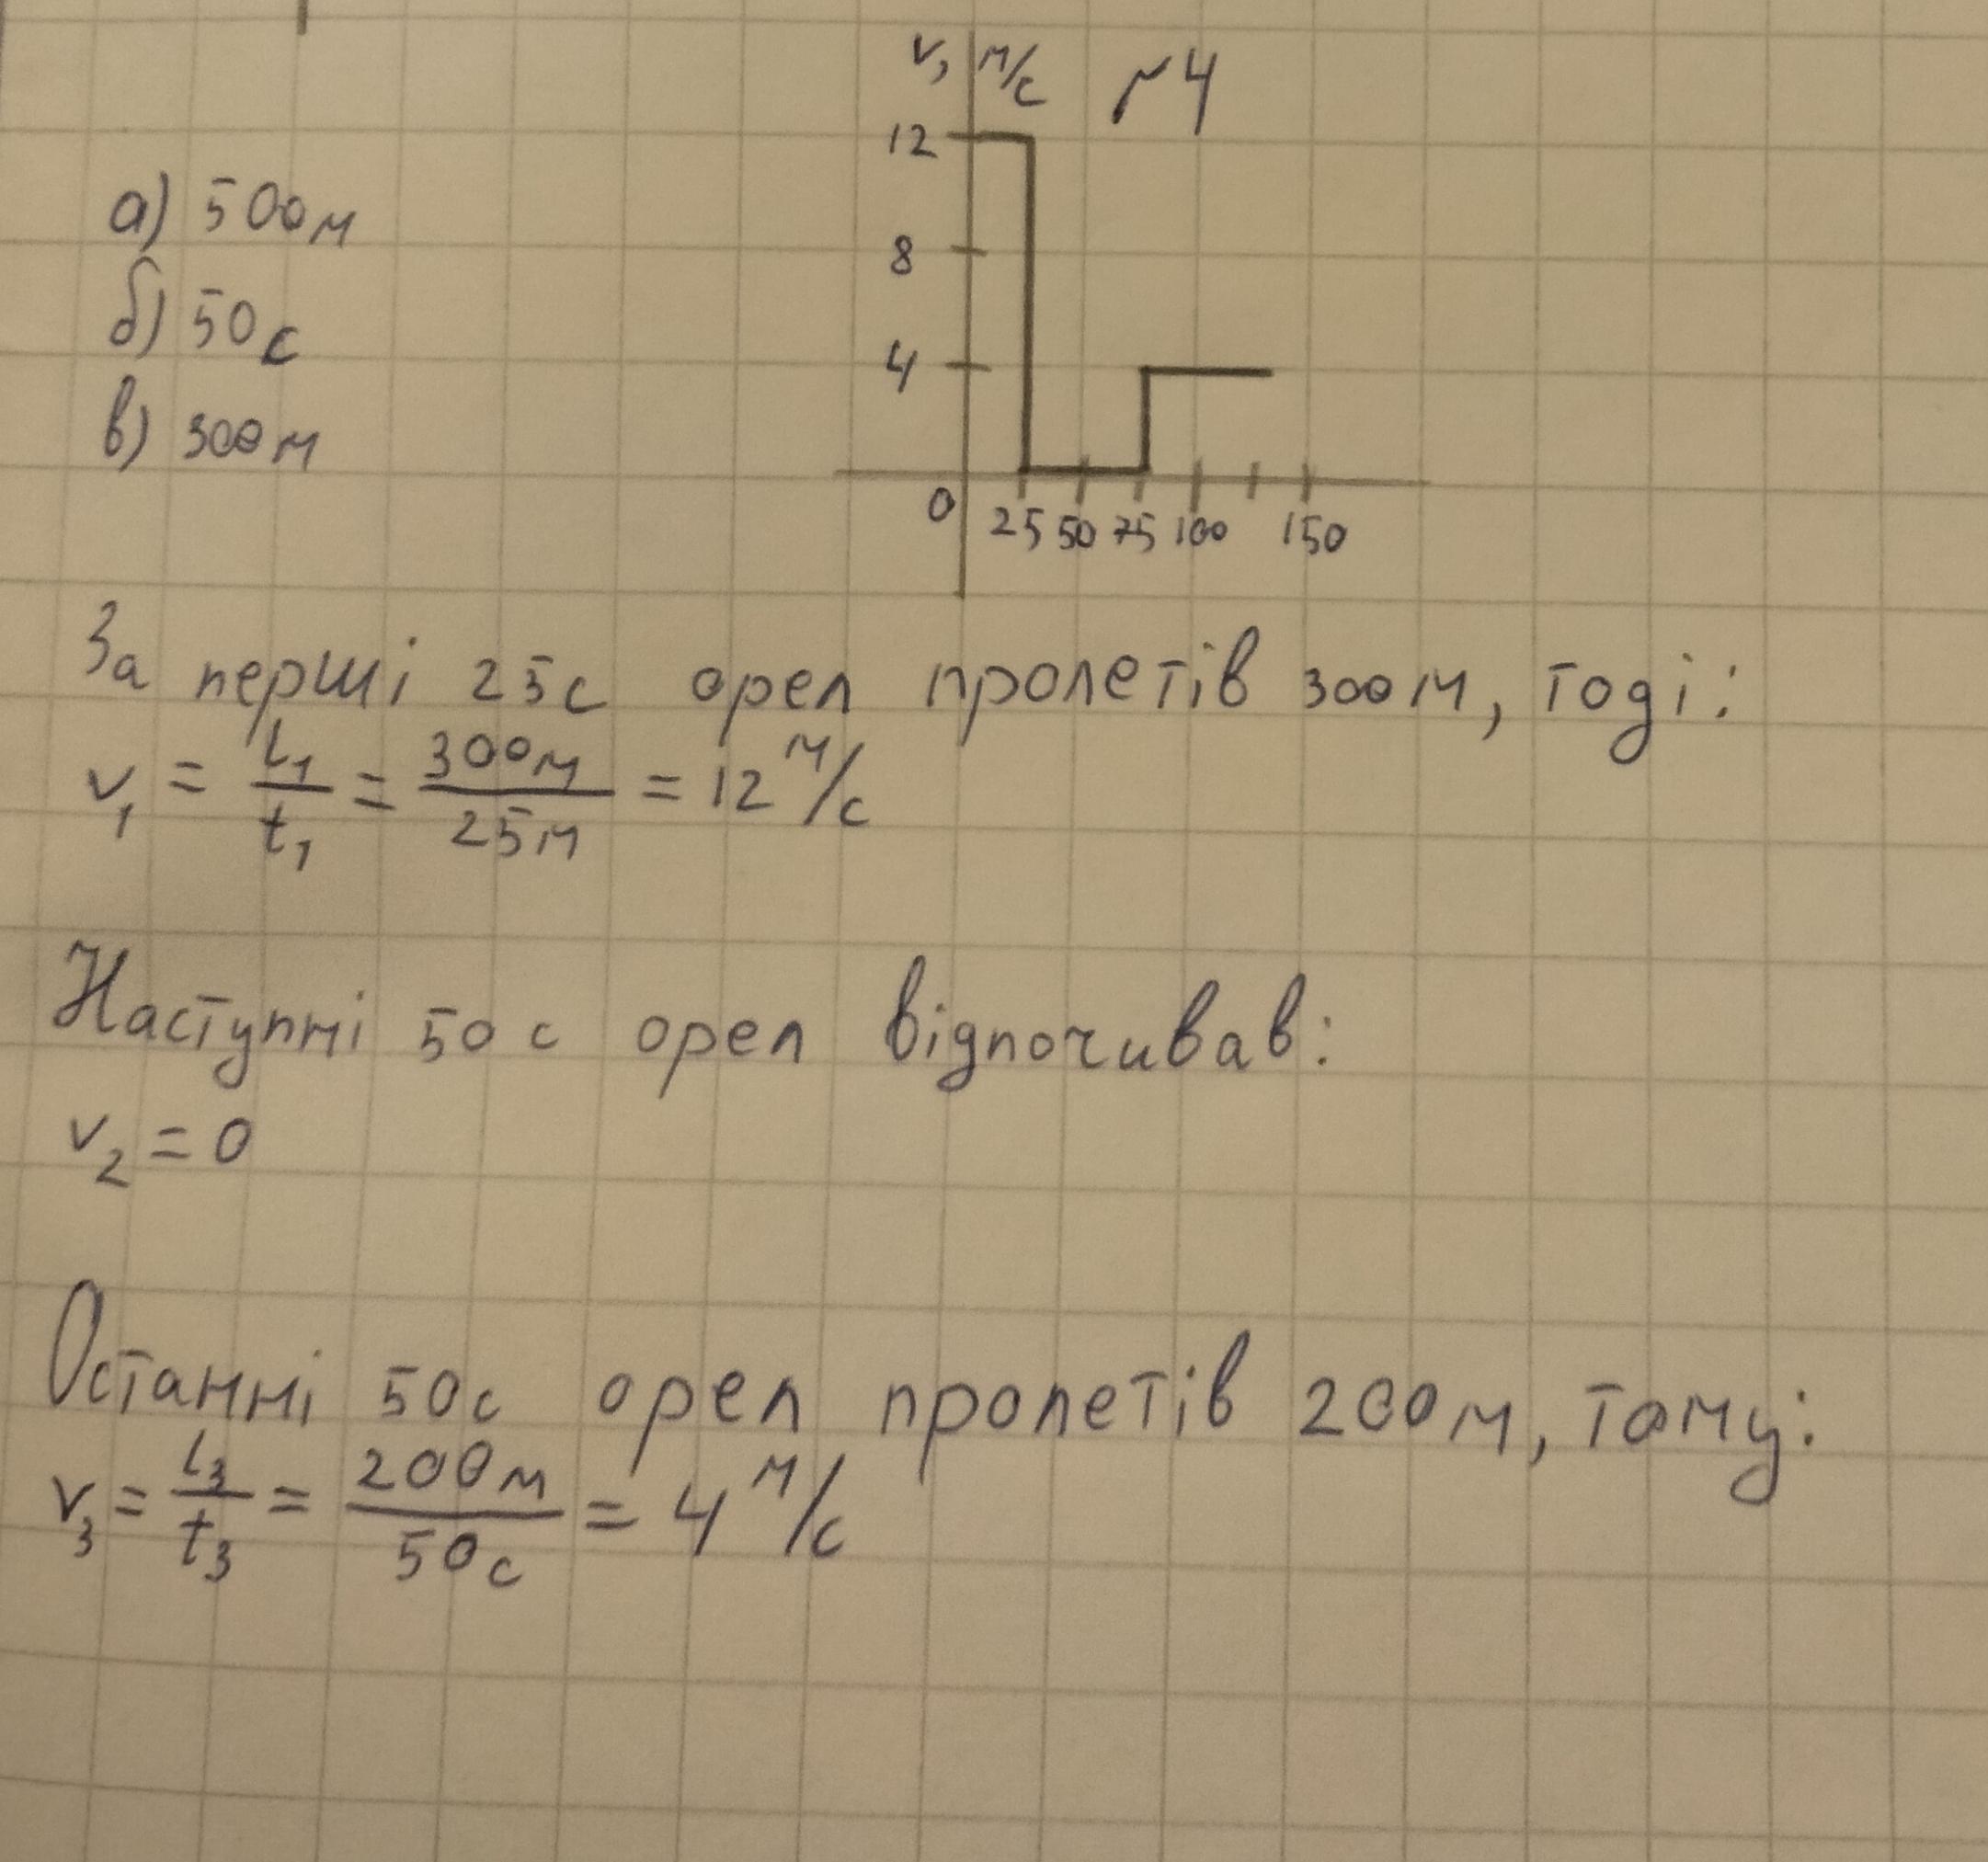 v, м/с №4
12
8
4
0 25 50 75 100 150
а) 500м
б) 50с
в) 300м
За перші 25с орел пролетів 300м, тоді:
v₁ = l₁/t₁ = 300м/25м = 12 м/с
Наступні 50с орел відпочивав:
v₂ = 0
Останні 50с орел пролетів 200м, тому:
v₃ = l₃/t₃ = 200м/50с = 4 м/с